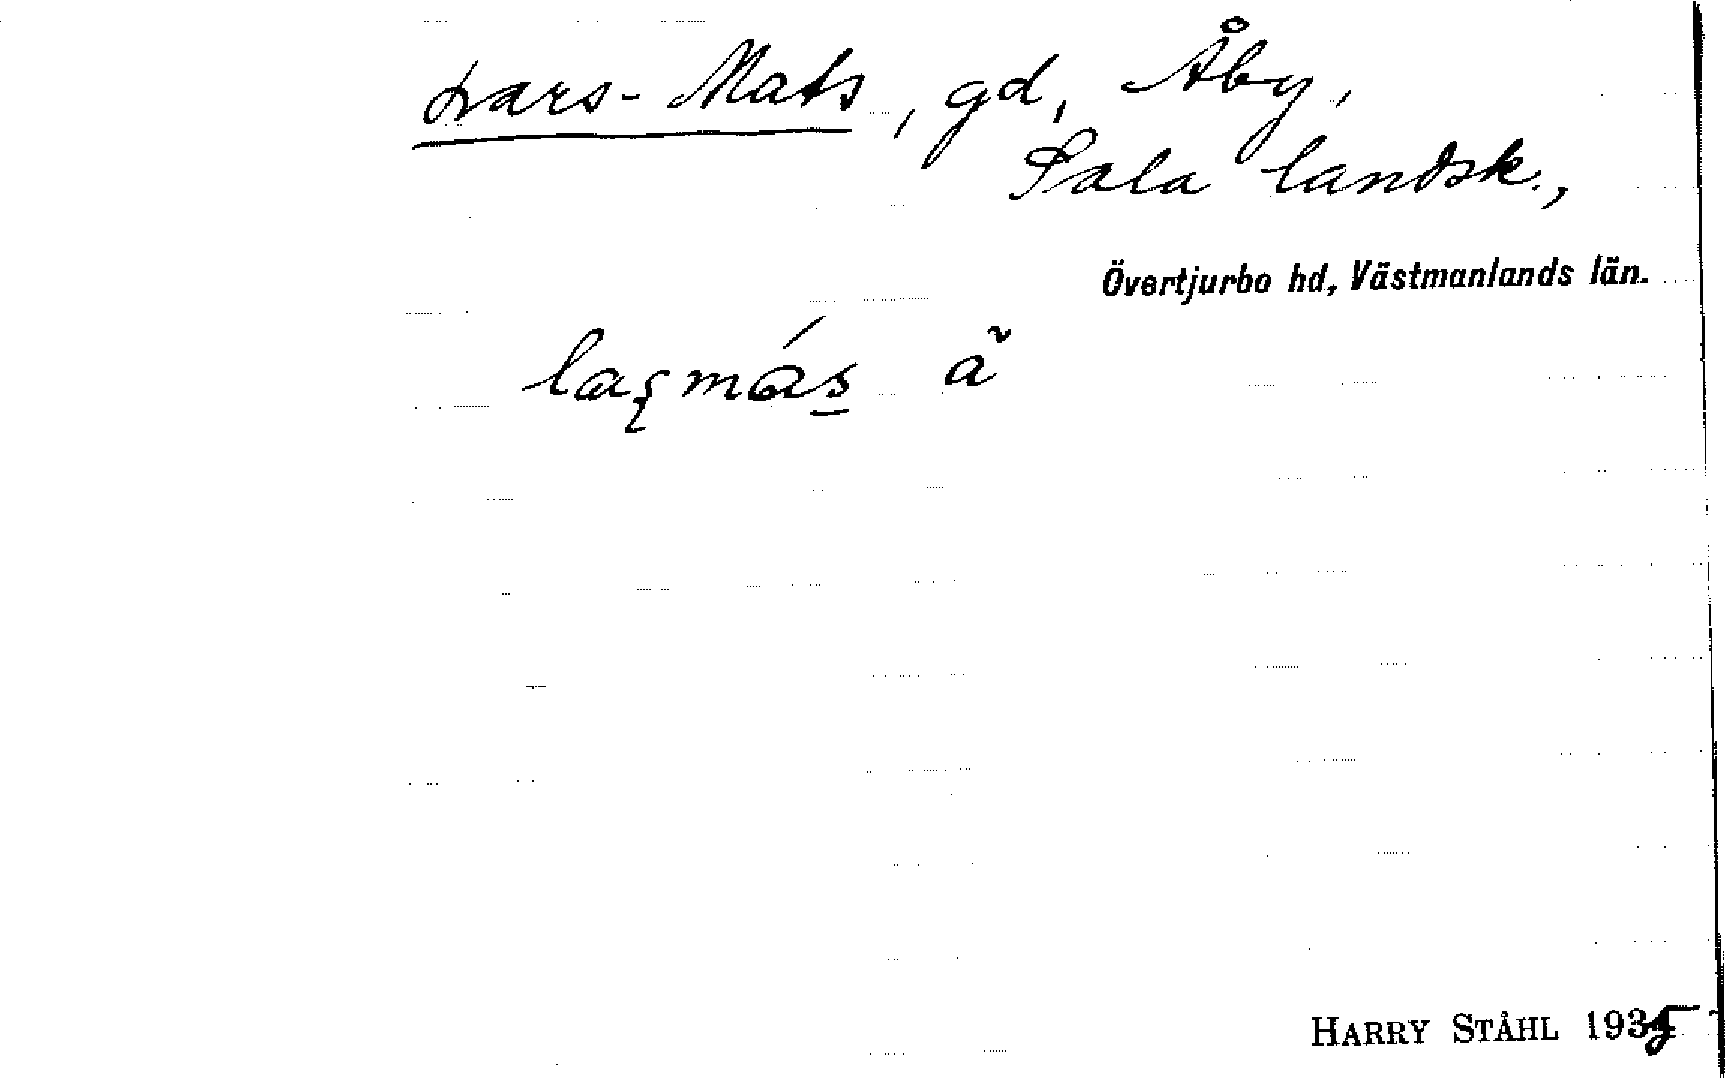 Lars-Mats, gd, Åby,
Sala landsk.,
Övertjurbo hd, Västmanlands län.
HARRY STÅHL 1935